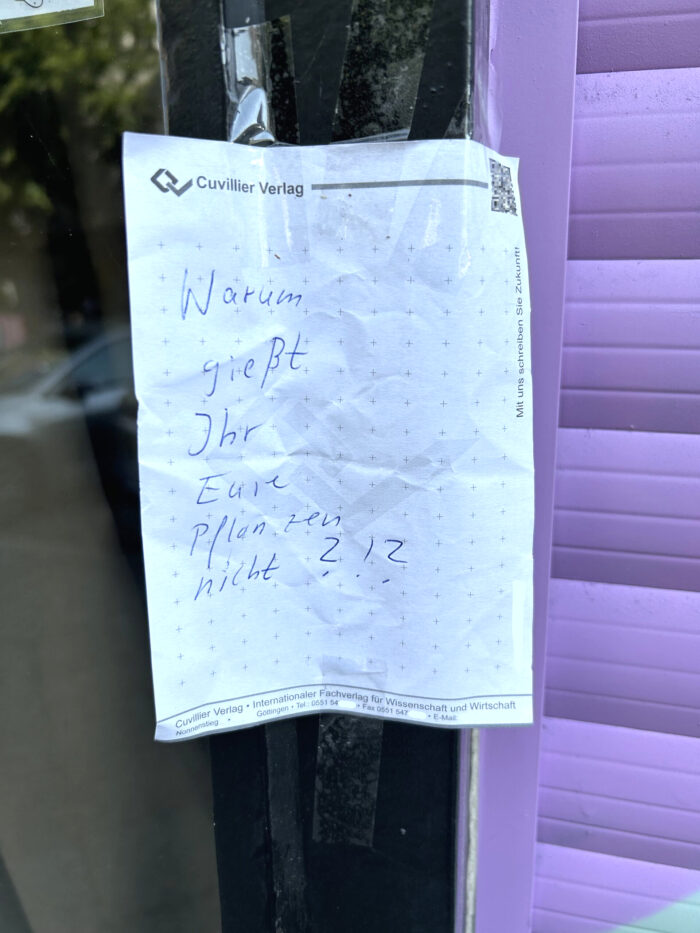 Cuvillier Verlag
Mit uns schreiben Sie Zukunft!
Warum
gießt
Ihr
Eure
Pflanzen
nicht ?!?
Cuvillier Verlag • Internationaler Fachverlag für Wissenschaft und Wirtschaft
Nonnenstieg • Göttingen • Tel.: 0551 54 • Fax 0551 547 • E-Mail: